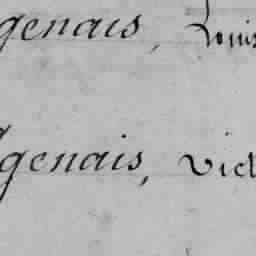 genais, Louis
genais, Vict